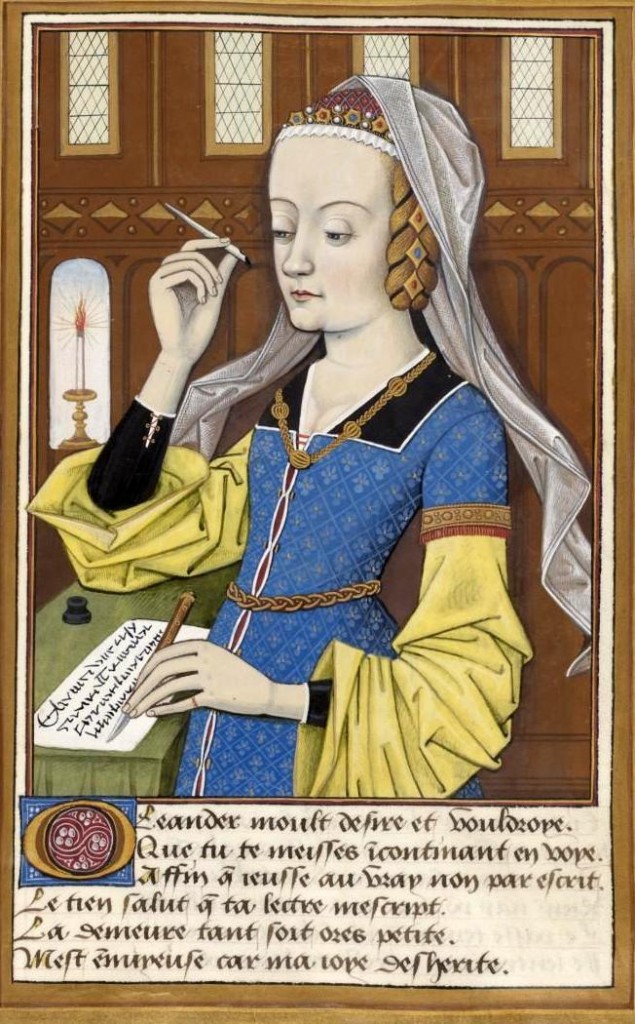 O Leander moult desire et vouldroye.
Que tu te meisses ĩcontinant en voye.
Affin q̃ ieusse au vray non par escrit.
Le tien salut q̃ ta lectre mescript.
La demeure tant soit ores petite.
Mest ẽnuyeuse car ma ioye desherite.